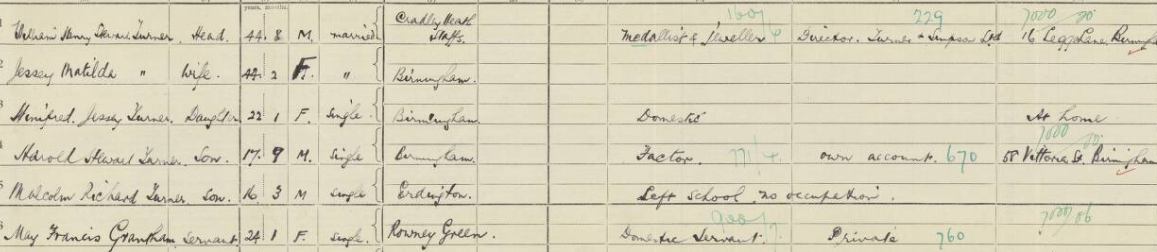 years. months.
1 William Henry Stewart Turner. Head. 44 8 M. married Cradley Heath Staffs. Medallist & Jeweller Director. Turner & Simpson Ltd 229 7000 16 Legge Lane, Birmingh
2 Jessey Matilda " Wife. 44 2 F. " Birmingham.
3 Winifred. Jessey Turner. Daughter 22 1 F. Single. Birmingham. Domestic At home
4 Harold Stewart Turner. Son. 17. 9 M. Single Birmingham. Factor. own account. 670 7000 58 Vittoria St. Birmingham
5 Malcolm Richard Turner. Son. 16 3 M Single Erdington. Left school, no occupation.
6 May Francis Grantham Servant 24 1 F. Single. Rowney Green. Domestic Servant. Private 760